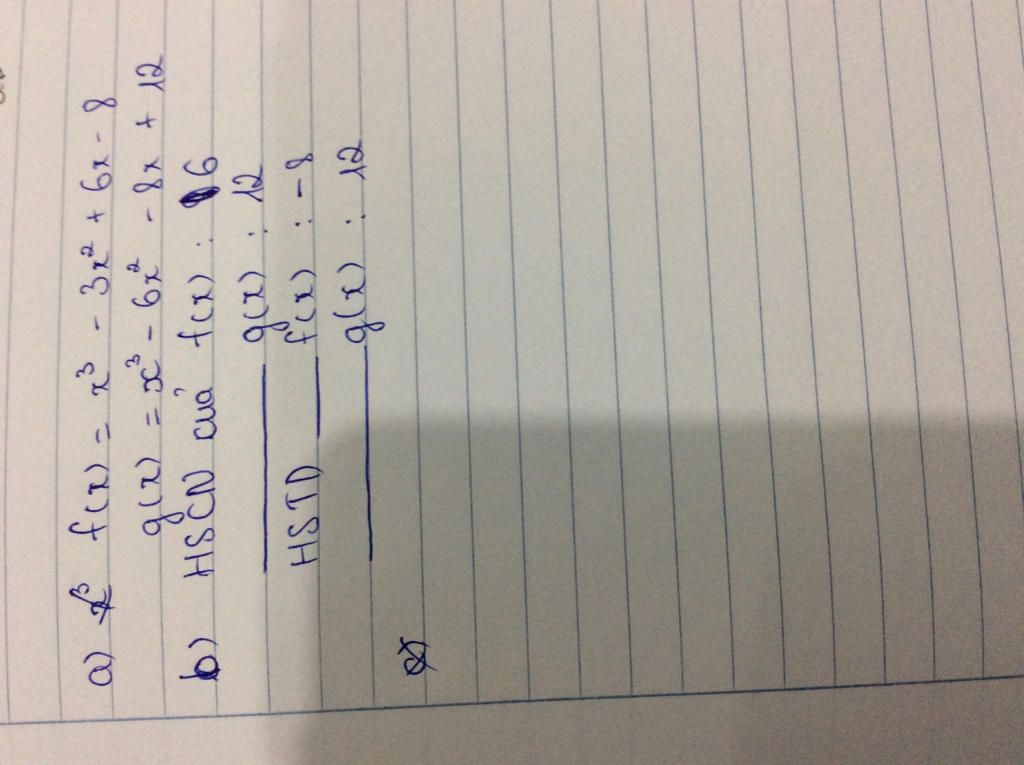 a) f(x) = x³ - 3x² + 6x - 8
g(x) = x³ - 6x² - 8x + 12
b) HSCN của f(x) : 6
g(x) : 12
HSTD f(x) : -8
g(x) : 12